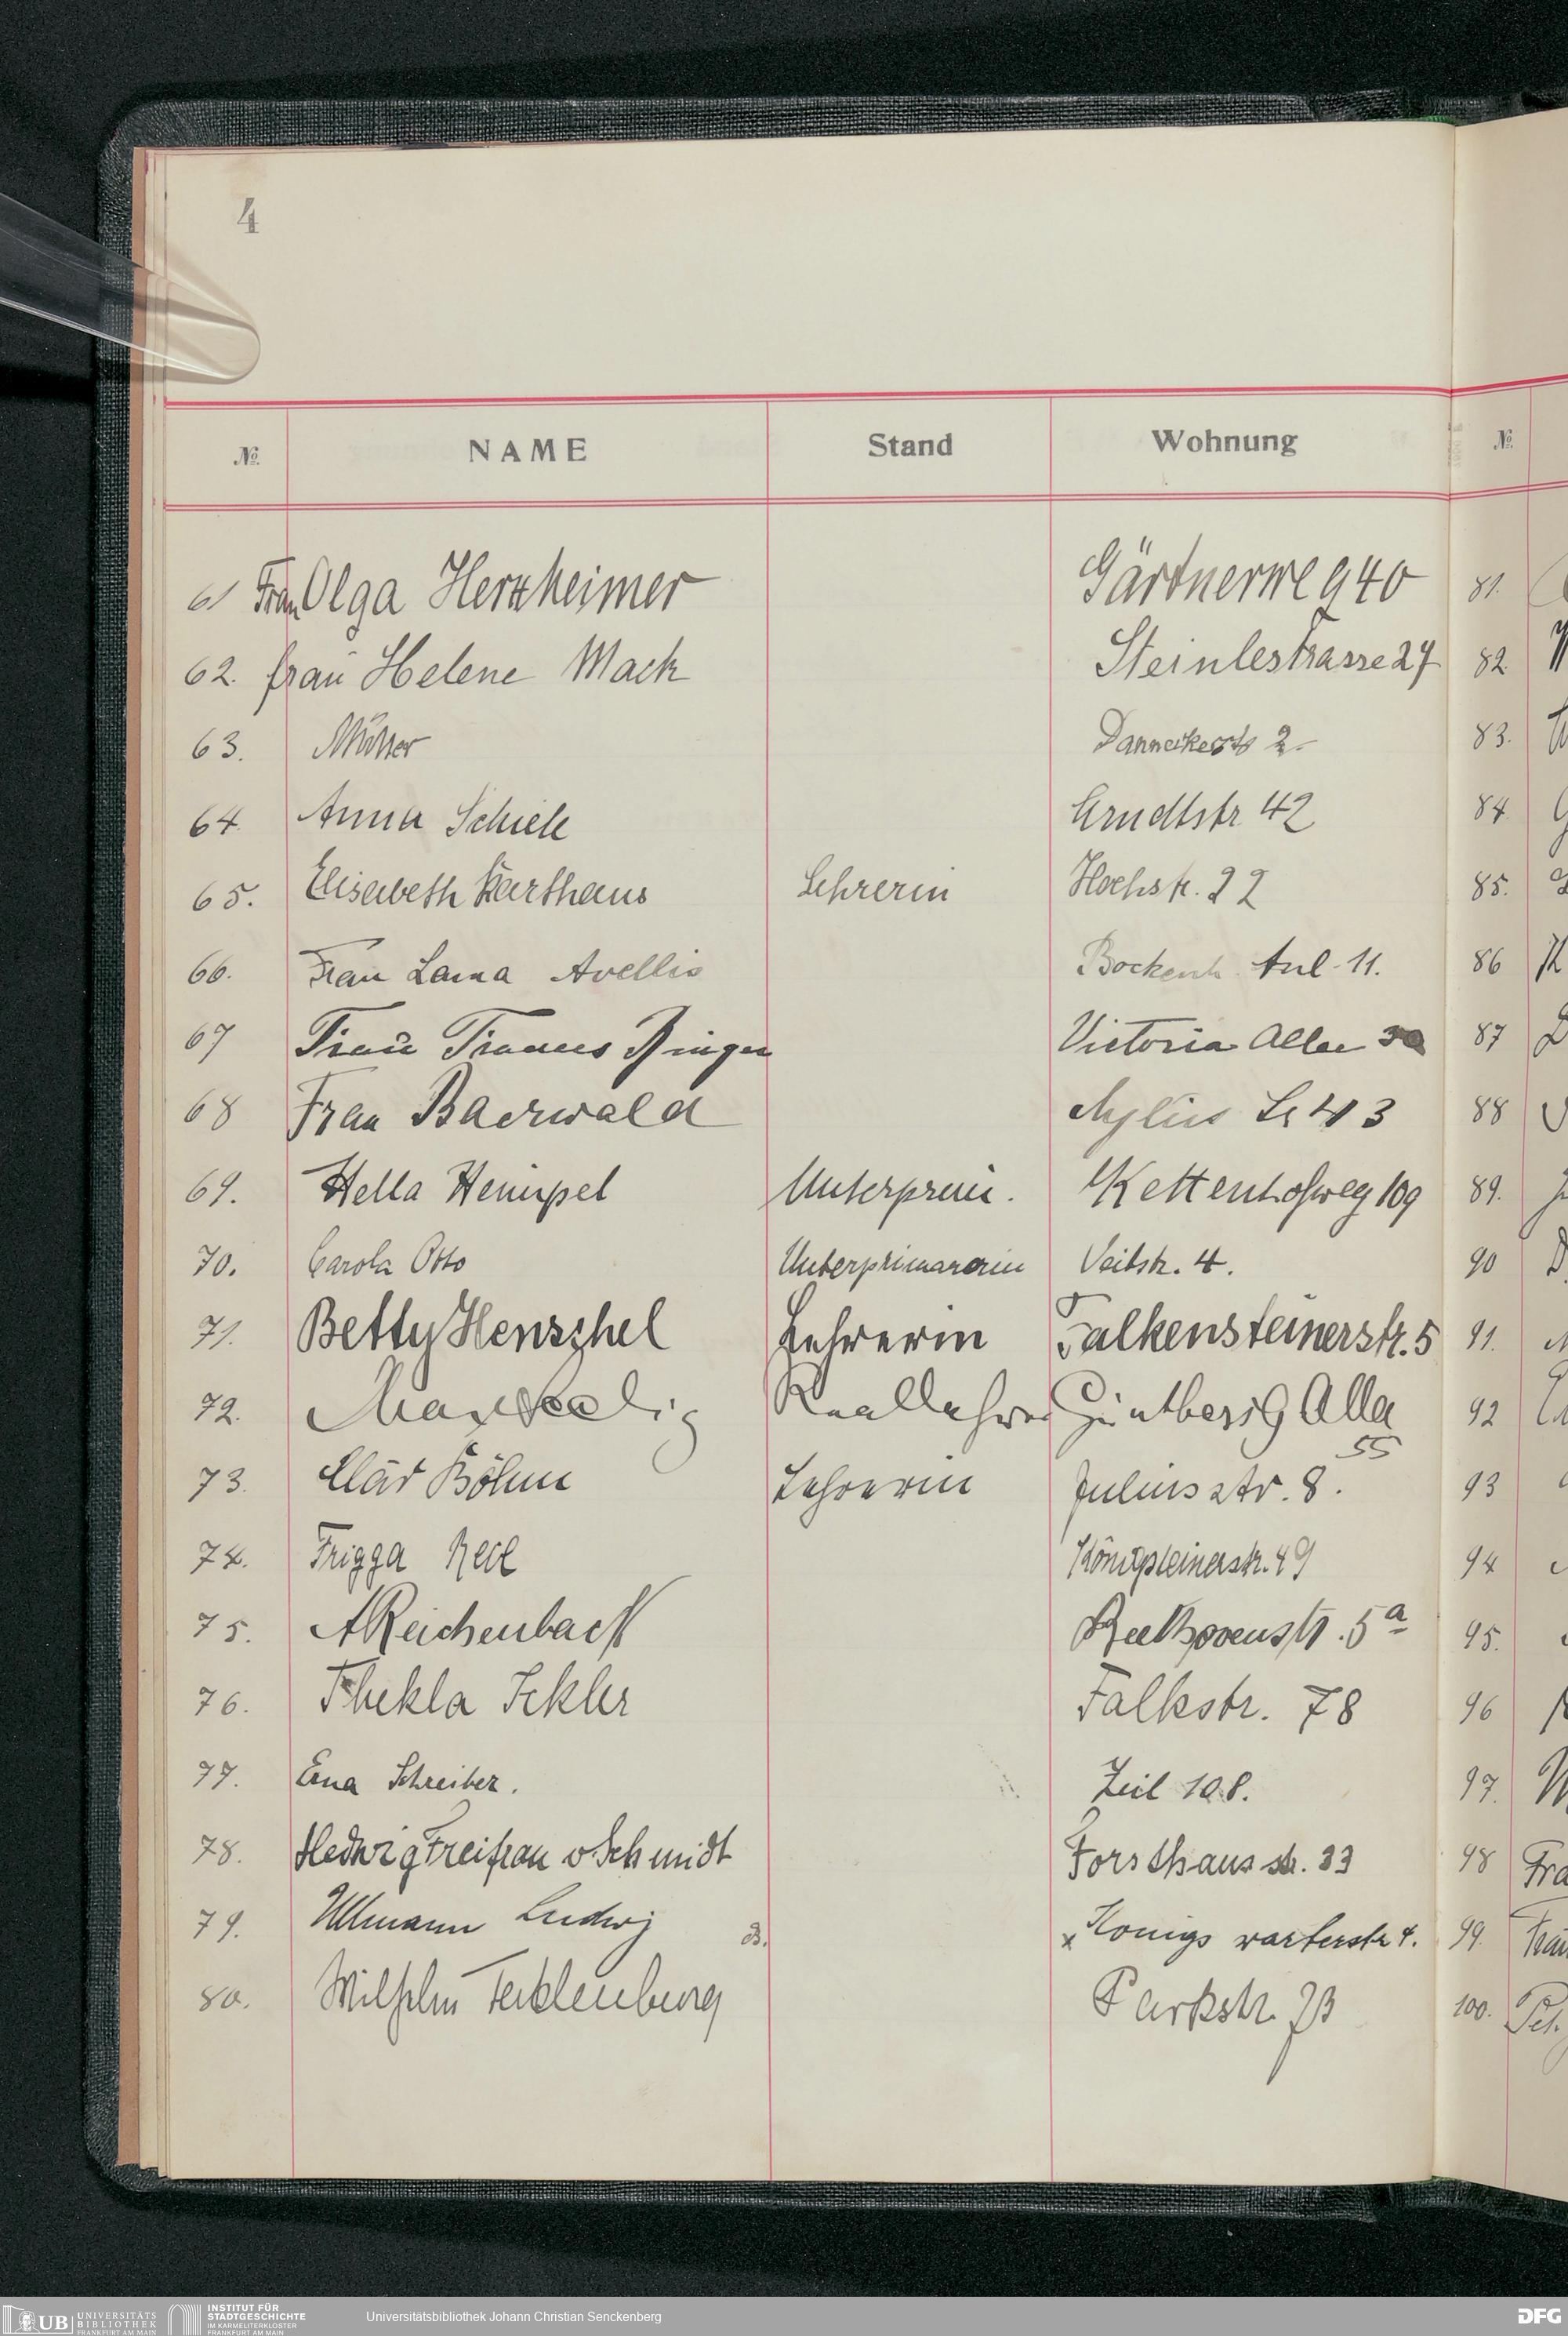 4
№ NAME Stand Wohnung №
61 Frau Olga Herxheimer Gärtnerweg 40 81.
62. Frau Helene Mack Steinlestrasse 27 82.
63. Müller Danneckerstr 2. 83.
64. Anna Schiele Arndtstr 42 84
65. Elisabeth Karthaus Lehrerin Hochstr. 22 85.
66. Frau Avellis Bockenh. Anl. 11. 86
67 Frau Binger Victoria Allee 87
68 Frau Baerwald Mylius Str 43 88
69. Hella Hempel Unterprim. Kettenhofweg 109 89.
70. Carola Otto Unterprimanerin Veitstr. 4. 90
71. Betty Henschel Lehrerin Falkensteinerstr. 5 91.
72. Max Seelig Reallehrer Günthersb Allee 92
55
73. Clär Böhm Lehrerin Juliusstr. 8. 93
74. Frigga Königsteinerstr. 49 94
75. A Reichenbach Beethovenstr. 5a 95.
76. Thekla Sekler Falkstr. 78 96
77. Erna Schreiber. Zeil 108. 97.
78. Hedwig Freifrau v Schmidt Forsthausstr. 33 98 Fra
79. Ullmann Ludwig B. x Königswarterstr 4. 99.
80. Wilhelm Tecklenburg Parkstr. 100.
UB UNIVERSITÄTS
BIBLIOTHEK
FRANKFURT AM MAIN
INSTITUT FÜR
STADTGESCHICHTE
IM KARMELITERKLOSTER
FRANKFURT AM MAIN
Universitätsbibliothek Johann Christian Senckenberg
DFG